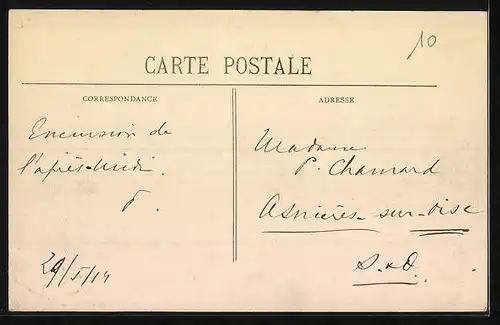 10
CARTE POSTALE
CORRESPONDANCE
ADRESSE
Excursion de
l'après-midi.
P.
29/5/14
Madame
P. Chamard
Asnières-sur-Oise
S. & O.